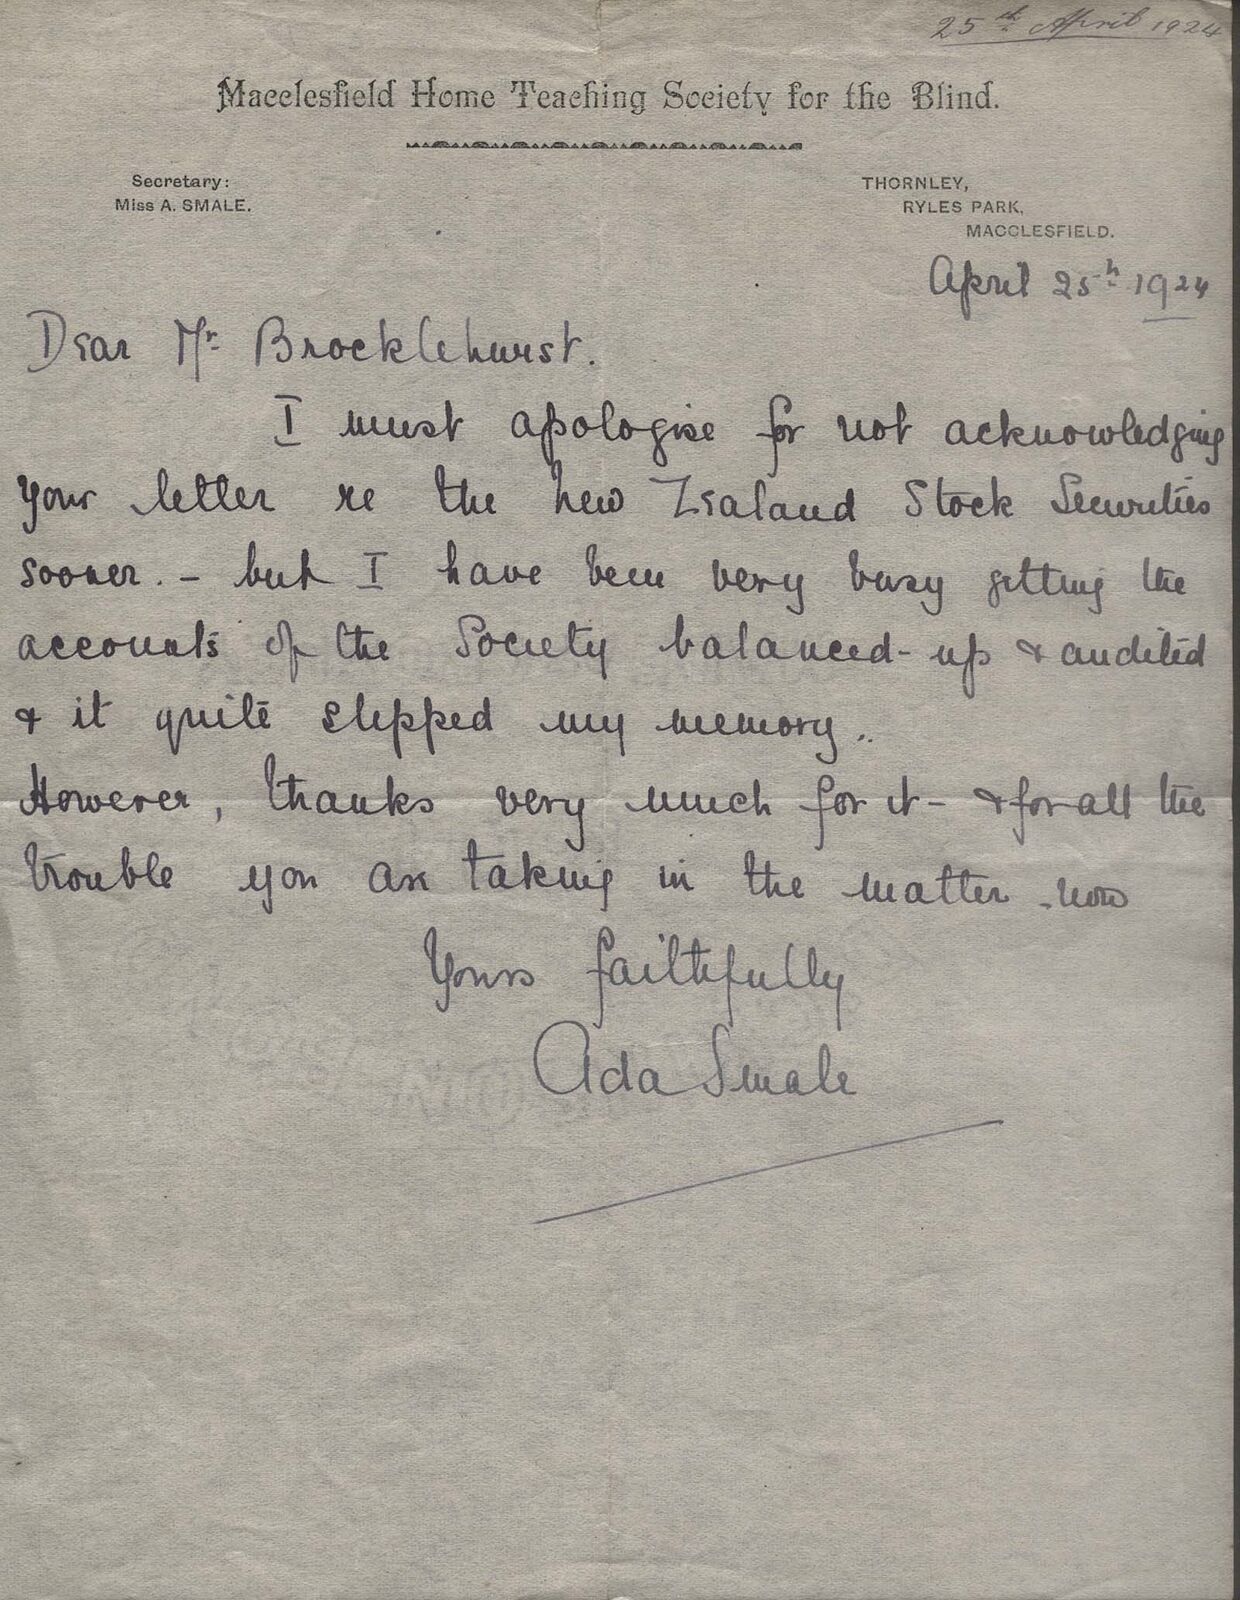 25th April 1924
Macclesfield Home Teaching Society for the Blind.
Secretary:
Miss A. SMALE.
THORNLEY,
RYLES PARK,
MACCLESFIELD.
April 25th 1924
Dear Mr Brocklehurst.
I must apologise for not acknowledging
your letter re the New Zealand Stock Securities
sooner. - but I have been very busy getting the
accounts of the Society balanced-up & audited
& it quite slipped my memory..
However, thanks very much for it - & for all the
trouble you are taking in the matter - now
Yours faithfully
Ada Smale